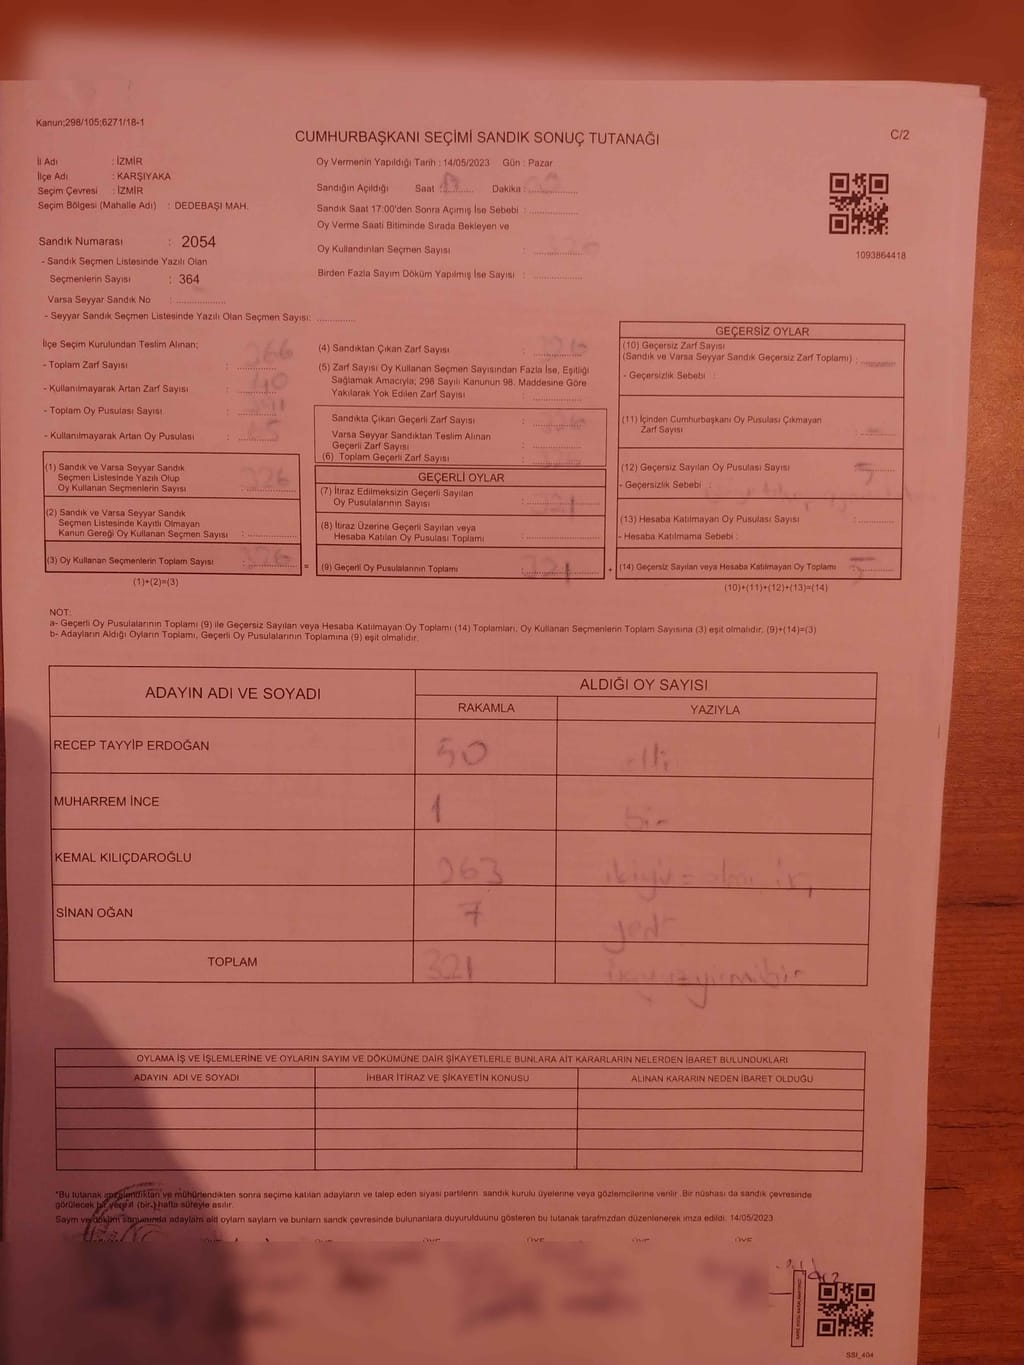 Kanun;298/105;6271/18-1
CUMHURBAŞKANI SEÇİMİ SANDIK SONUÇ TUTANAĞI
C/2
İl Adı : İZMİR
İlçe Adı : KARŞIYAKA
Seçim Çevresi : İZMİR
Seçim Bölgesi (Mahalle Adı) : DEDEBAŞI MAH.
Oy Vermenin Yapıldığı Tarih : 14/05/2023 Gün : Pazar
Sandığın Açıldığı Saat : Dakika :
Sandık Saat 17:00'den Sonra Açımış İse Sebebi :
Oy Verme Saati Bitiminde Sırada Bekleyen ve
Oy Kullandırılan Seçmen Sayısı :
Birden Fazla Sayım Döküm Yapılmış İse Sayısı :
1093864418
Sandık Numarası : 2054
- Sandık Seçmen Listesinde Yazılı Olan
Seçmenlerin Sayısı : 364
Varsa Seyyar Sandık No :
- Seyyar Sandık Seçmen Listesinde Yazılı Olan Seçmen Sayısı:
İlçe Seçim Kurulundan Teslim Alınan;
- Toplam Zarf Sayısı : 366
- Kullanılmayarak Artan Zarf Sayısı : 40
- Toplam Oy Pusulası Sayısı :
- Kullanılmayarak Artan Oy Pusulası :
(1) Sandık ve Varsa Seyyar Sandık
Seçmen Listesinde Yazılı Olup
Oy Kullanan Seçmenlerin Sayısı : 326
(2) Sandık ve Varsa Seyyar Sandık
Seçmen Listesinde Kayıtlı Olmayan
Kanun Gereği Oy Kullanan Seçmen Sayısı :
(3) Oy Kullanan Seçmenlerin Toplam Sayısı : 326
(1)+(2)=(3)
(4) Sandıktan Çıkan Zarf Sayısı : 326
(5) Zarf Sayısı Oy Kullanan Seçmen Sayısından Fazla İse, Eşitliği
Sağlamak Amacıyla; 298 Sayılı Kanunun 98. Maddesine Göre
Yakılarak Yok Edilen Zarf Sayısı :
Sandıkta Çıkan Geçerli Zarf Sayısı : 326
Varsa Seyyar Sandıktan Teslim Alınan
Geçerli Zarf Sayısı :
(6) Toplam Geçerli Zarf Sayısı :
GEÇERLİ OYLAR
(7) İtiraz Edilmeksizin Geçerli Sayılan
Oy Pusulalarının Sayısı : 321
(8) İtiraz Üzerine Geçerli Sayılan veya
Hesaba Katılan Oy Pusulası Toplamı :
= (9) Geçerli Oy Pusulalarının Toplamı : 321 +
GEÇERSİZ OYLAR
(10) Geçersiz Zarf Sayısı
(Sandık ve Varsa Seyyar Sandık Geçersiz Zarf Toplamı) :
- Geçersizlik Sebebi :
(11) İçinden Cumhurbaşkanı Oy Pusulası Çıkmayan
Zarf Sayısı :
(12) Geçersiz Sayılan Oy Pusulası Sayısı : 5
- Geçersizlik Sebebi :
(13) Hesaba Katılmayan Oy Pusulası Sayısı :
- Hesaba Katılmama Sebebi :
(14) Geçersiz Sayılan veya Hesaba Katılmayan Oy Toplamı : 5
(10)+(11)+(12)+(13)=(14)
NOT:
a- Geçerli Oy Pusulalarının Toplamı (9) ile Geçersiz Sayılan veya Hesaba Katılmayan Oy Toplamı (14) Toplamları, Oy Kullanan Seçmenlerin Toplam Sayısına (3) eşit olmalıdır. (9)+(14)=(3)
b- Adayların Aldığı Oyların Toplamı, Geçerli Oy Pusulalarının Toplamına (9) eşit olmalıdır.
ADAYIN ADI VE SOYADI
ALDIĞI OY SAYISI
RAKAMLA YAZIYLA
RECEP TAYYİP ERDOĞAN 50 elli
MUHARREM İNCE 1 bir
KEMAL KILIÇDAROĞLU 263
SİNAN OĞAN 7 yedi
TOPLAM 321
OYLAMA İŞ VE İŞLEMLERİNE VE OYLARIN SAYIM VE DÖKÜMÜNE DAİR ŞİKAYETLERLE BUNLARA AİT KARARLARIN NELERDEN İBARET BULUNDUKLARI
ADAYIN ADI VE SOYADI İHBAR İTİRAZ VE ŞİKAYETİN KONUSU ALINAN KARARIN NEDEN İBARET OLDUĞU
*Bu tutanak imzalendıktan ve mühürlendikten sonra seçime katılan adayların ve talep eden siyasi partilerin sandık kurulu üyelerine veya gözlemcilerine verilir. Bir nüshası da sandık çevresinde
görülecek bir yere (bir) hafta süreyle asılır.
Sayım ve döküm sonunda adayların ald oyların sayları ve bunların sandk çevresinde bulunanlara duyurulduunu gösteren bu tutanak tarafmzdan düzenlenerek imza edildi. 14/05/2023
ÜYE ÜYE ÜYE ÜYE ÜYE
SSI_404